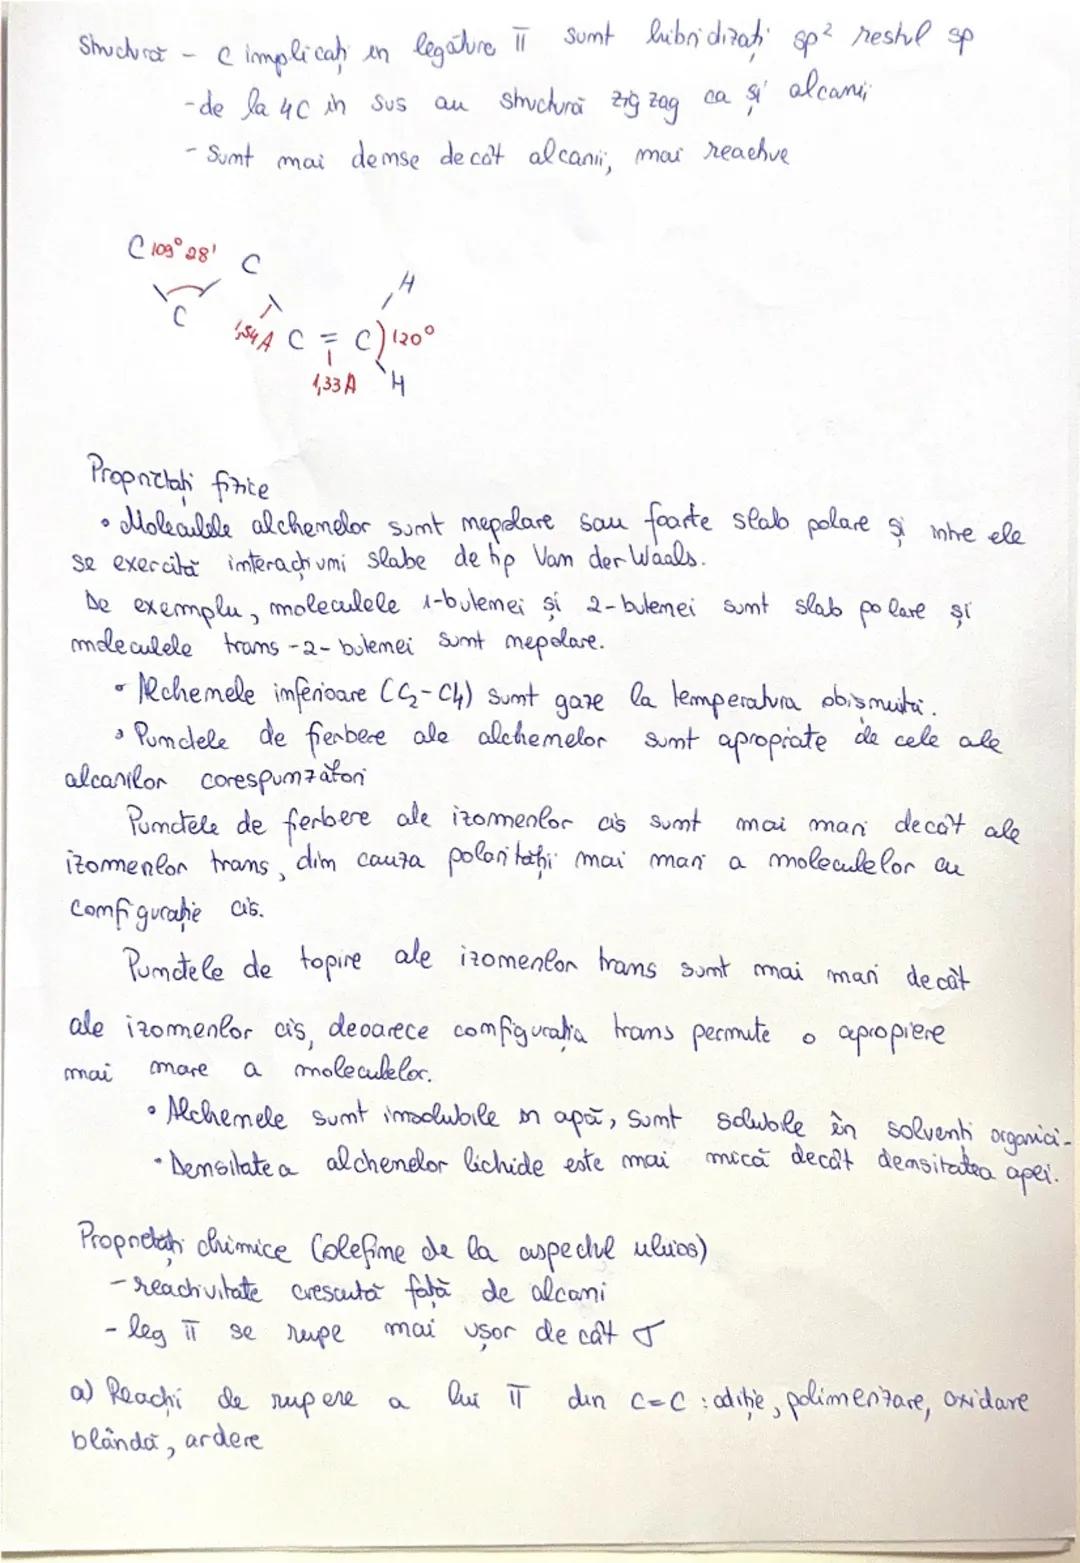 Structură - C implicați in legăture π sunt hibridizați sp² restul sp
-de la 4C in sus au structură zig zag ca și alcanii
- Sunt mai dense decât alcanii, mai reactive
C 109°28' C
H
C
1,54A C = C ) 120°
1,33A H
Proprietăți fizice
• Moleculele alchenelor sunt nepolare sau foarte slab polare și intre ele
se exercită interacțiuni slabe de tip Van der Waals.
De exemplu, moleculele 1-butenei și 2-butenei sunt slab polare și
moleculele trans-2-butenei sunt nepolare.
• Alchenele inferioare (C2-C4) sunt gaze la temperatura obișnuită.
• Punctele de fierbere ale alchenelor sunt apropiate de cele ale
alcanilor corespunzători
Punctele de fierbere ale izomerilor cis sunt mai mari decât ale
izomerilor trans, din cauza polarității mai mari a moleculelor cu
configurație cis.
Punctele de topire ale izomerilor trans sunt mai mari decât
ale izomerilor cis, deoarece configurația trans permite o apropiere
mai mare a moleculelor.
• Alchenele sunt insolubile in apă, sunt solubile în solvenți organici.
• Densitatea alchenelor lichide este mai mică decât densitatea apei.
Proprietăți chimice (olefine de la aspectul uluios)
- reactivitate crescută față de alcani
- leg π se rupe mai ușor decât σ
a) Reacții de rupere a lui π din C=C : adiție, polimerizare, oxidare
blândă, ardere